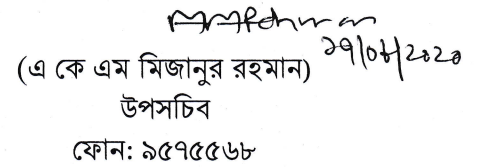 ২৭/০৮/২০২০
(এ কে এম মিজানুর রহমান)
উপসচিব
ফোন: ৯৫৭৫৫৬৮